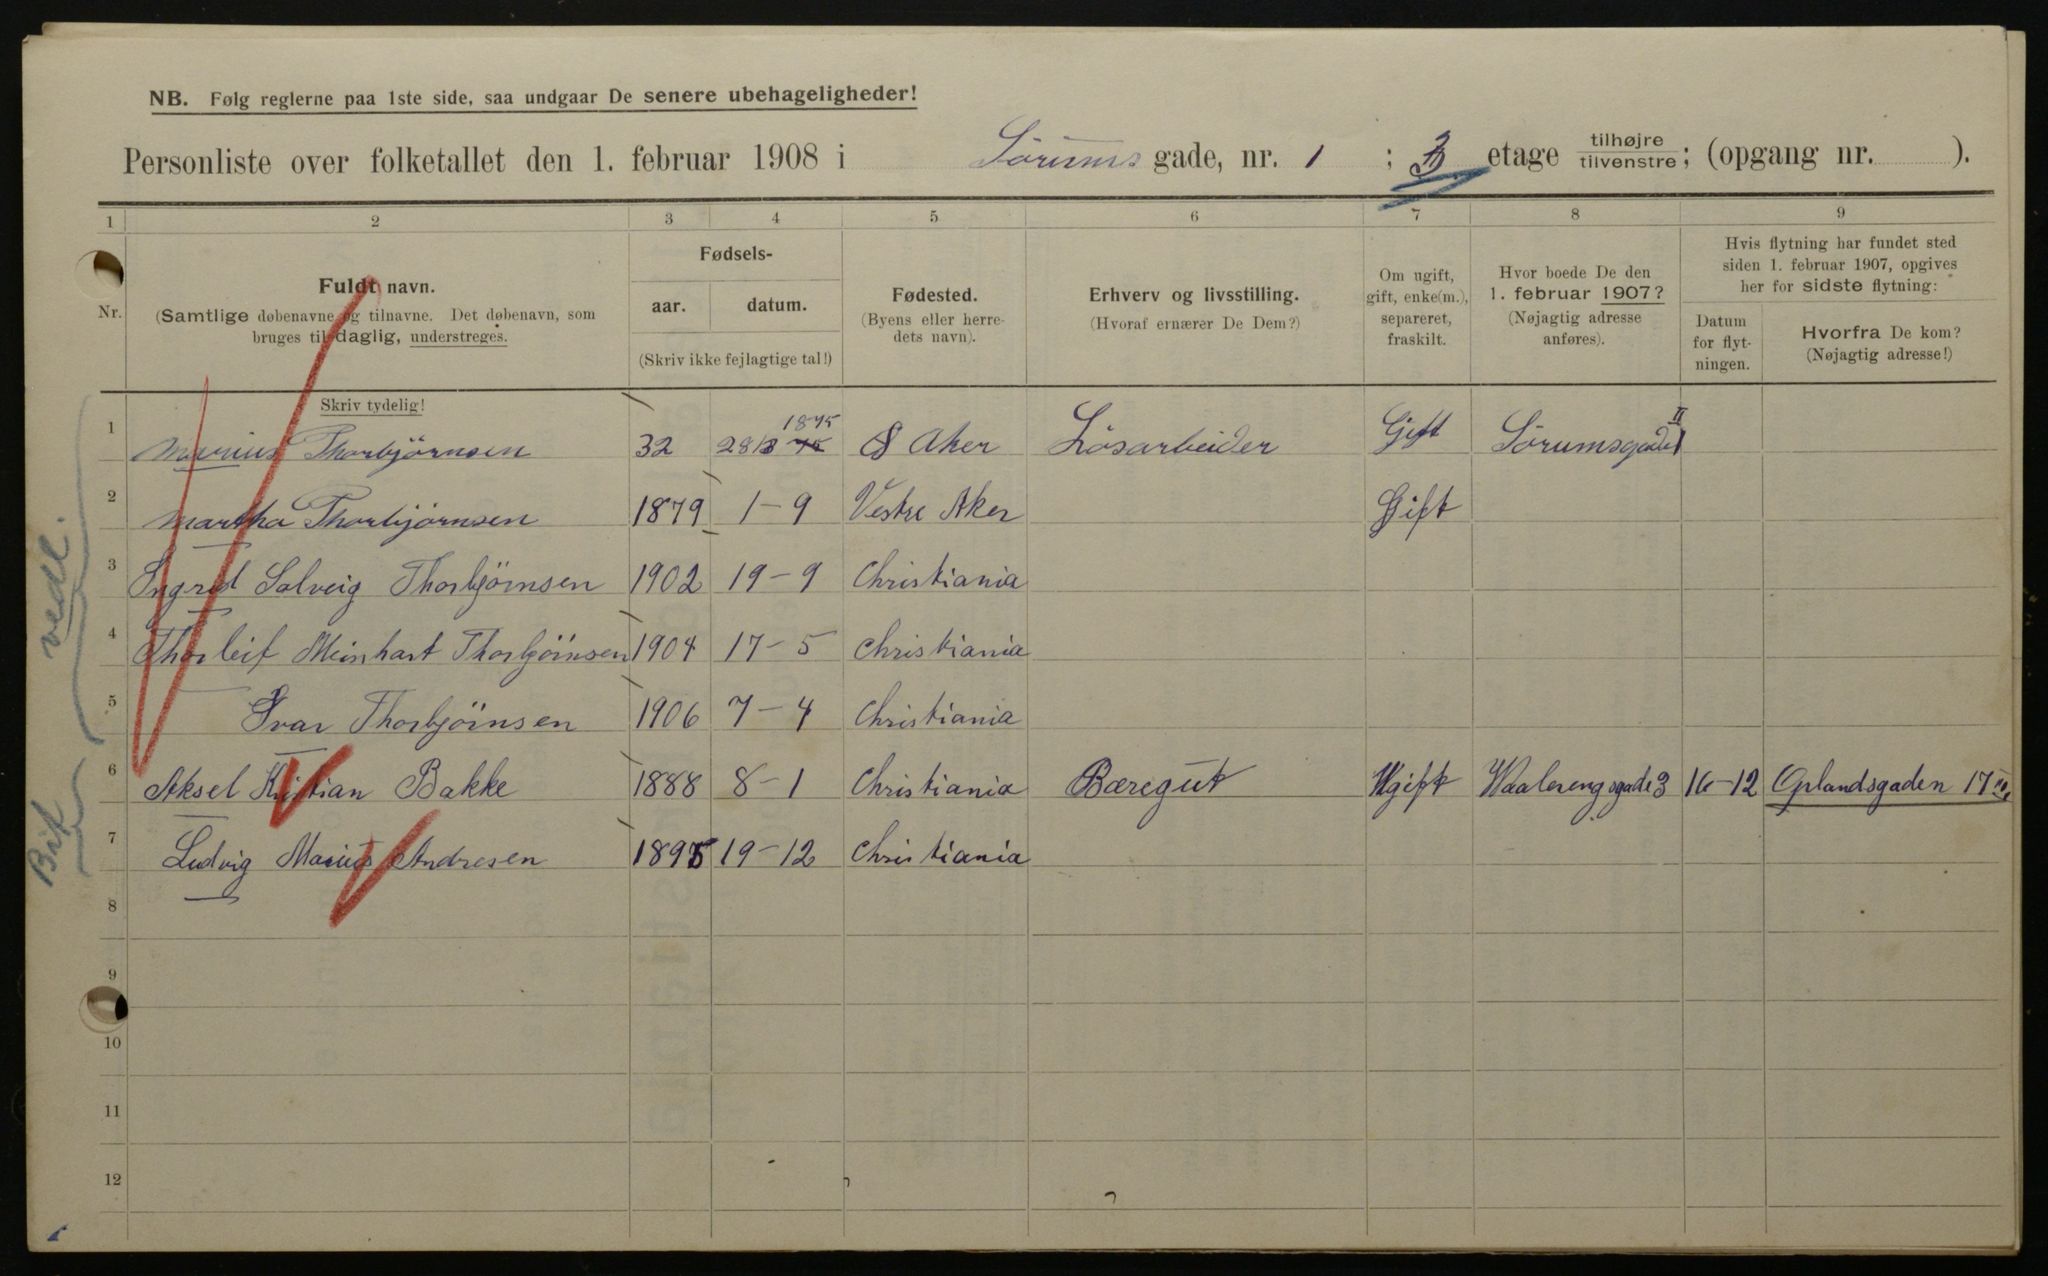 NB. Følg reglerne paa 1ste side, saa undgaar De senere ubehageligheder!
Personliste over folketallet den 1. februar 1908 i Sörums gade, nr. 1 ; 3 etage tilhøjre tilvenstre; (opgang nr. ).
1 2 3 4 5 6 7 8 9
Nr.
Fuldt navn.
(Samtlige døbenavne og tilnavne. Det døbenavn, som
bruges til daglig, understreges.
Skriv tydelig!
Fødsels-
aar. datum.
(Skriv ikke fejlagtige tal!)
Fødested.
(Byens eller herre-
dets navn).
Erhverv og livsstilling.
(Hvoraf ernærer De Dem?)
Om ugift,
gift, enke(m.),
separeret,
fraskilt.
Hvor boede De den
1. februar 1907?
(Nøjagtig adresse
anføres).
Hvis flytning har fundet sted
siden 1. februar 1907, opgives
her for sidste flytning:
Datum
for flyt-
ningen.
Hvorfra De kom?
(Nøjagtig adresse!)
1 Marius Thorbjörnsen 32 28/3 75 1875 Aker Lösarbeider Gift Sörumsgade 1 II
2 Martha Thorbjörnsen 1879 1-9 Vestre Aker Gift
3 Ingrid Solveig Thorbjörnsen 1902 19-9 Christiania
4 Thorleif Meinhart Thorbjörnsen 1904 17-5 Christiania
5 Ivar Thorbjörnsen 1906 7-4 Christiania
6 Aksel Kristian Bakke 1888 8-1 Christiania Bæregut Ugift Waalerengsgade 3 16-12 Oplandsgaden 17 III
7 Ludvig Marius Andresen 1895 19-12 Christiania
8
9
10
11
12
vedl.